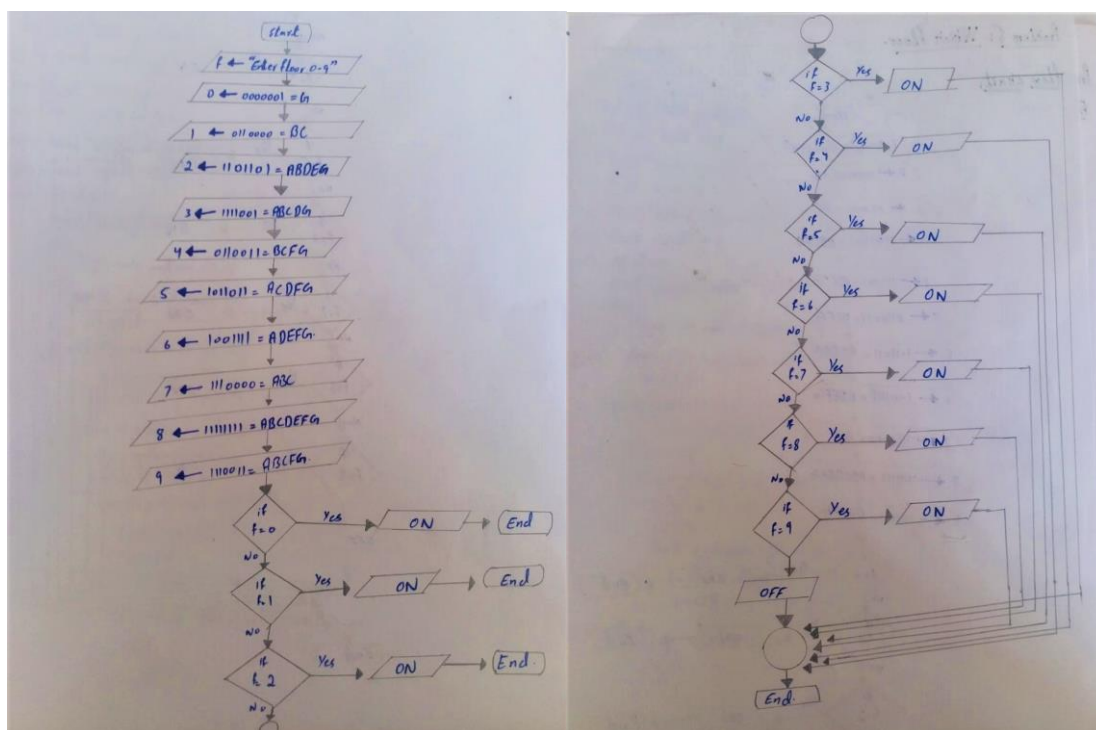 Start
f ← "Enter floor 0-9"
0 ← 0000001 = G
1 ← 0110000 = BC
2 ← 1101101 = ABDEG
3 ← 1111001 = ABCDG
4 ← 0110011 = BCFG
5 ← 1011011 = ACDFG
6 ← 1001111 = ADEFG.
7 ← 1110000 = ABC
8 ← 1111111 = ABCDEFG
9 ← 1110011 = ABCFG.
if f=0 Yes ON End
No
if f=1 Yes ON End
No
if f=2 Yes ON End.
No
if f=3 Yes ON
No
if f=4 Yes ON
No
if f=5 Yes ON
No
if f=6 Yes ON
No
if f=7 Yes ON
No
if f=8 Yes ON
No
if f=9 Yes ON
OFF
End.